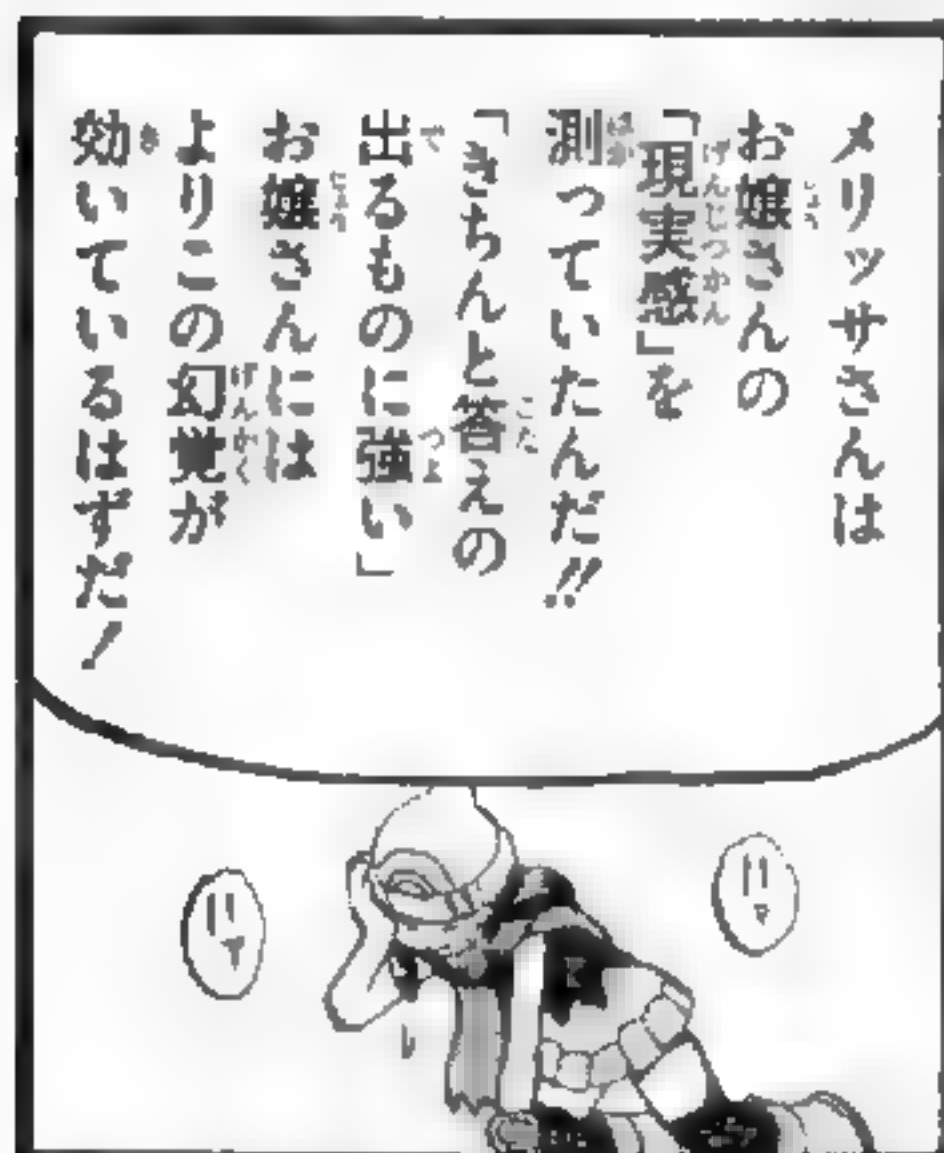 メリッサさんは
お嬢さんの
「現実感」を
測っていたんだ!!
「きちんと答えの
出るものに強い」
お嬢さんには
よりこの幻覚が
効いているはずだ!